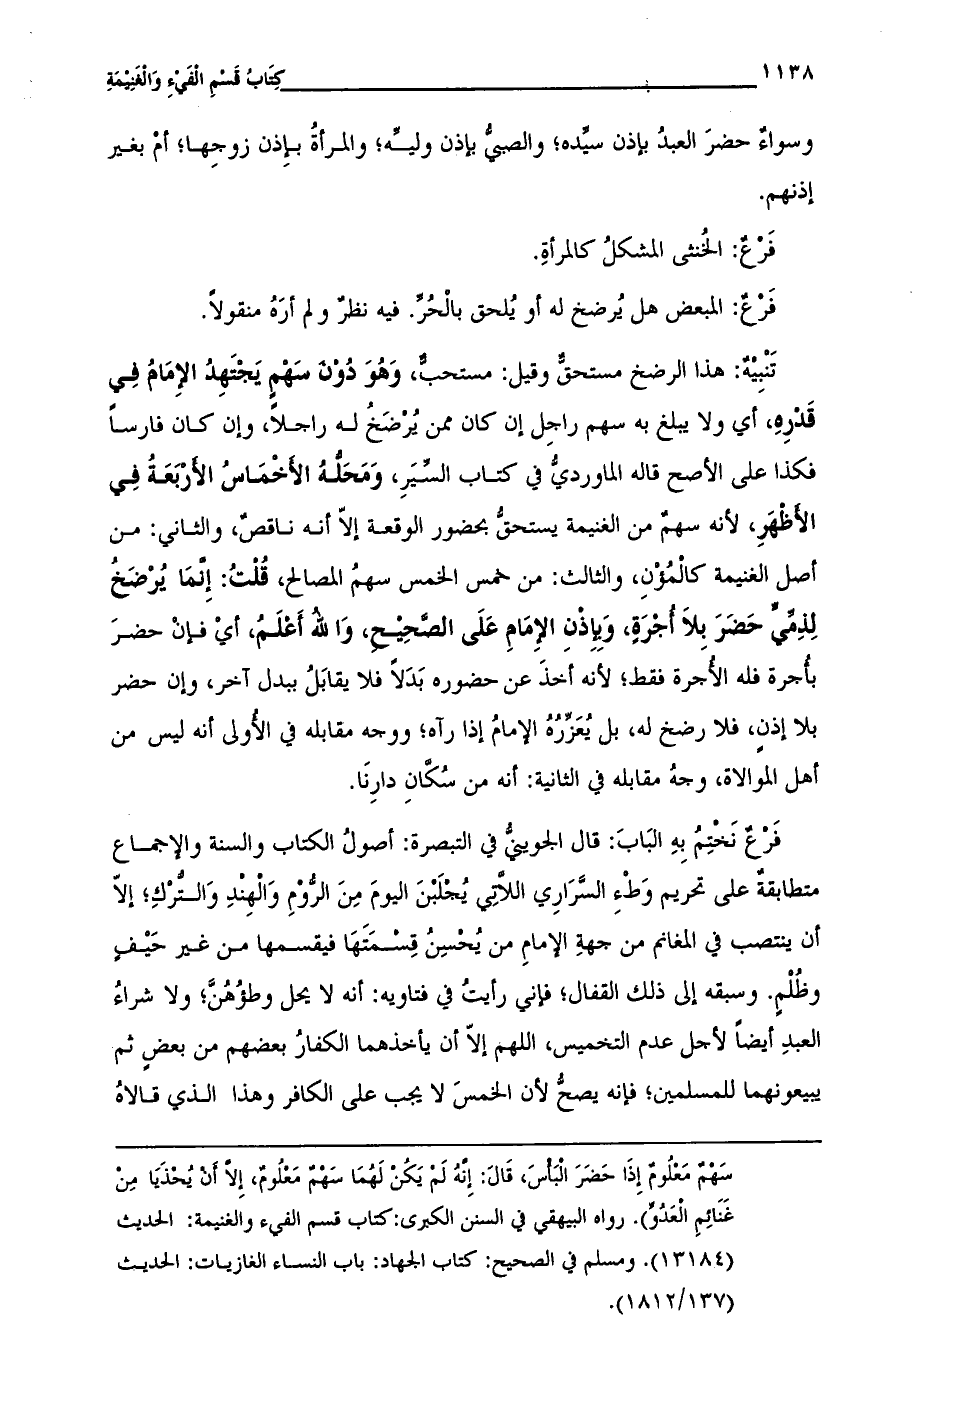 ١١٣٨ كِتَابُ قَسْمِ الْفَيْءِ وَالْغَنِيْمَةِ
وسواءٌ حضرَ العبدُ بإذن سيِّده؛ والصبيُّ بإذن وليِّه؛ والمرأةُ بإِذن زوجِها؛ أمْ بغير
إذنهم.
فَرْعٌ: الخُنثى المشكلُ كالمرأةِ.
فَرْعٌ: المبعض هل يُرضخ له أو يُلحق بالْحُرِّ. فيه نظرٌ ولم أرَهُ منقولاً.
تَنْبِيْهٌ: هذا الرضخ مستحقٌّ وقيل: مستحبٌّ، وَهُوَ دُوْنَ سَهْمٍ يَجْتَهِدُ الإِمَامُ فِي
قَدْرِهِ، أي ولا يبلغ به سهم راجِل إن كان ممن يُرْضَخُ له راجلاً، وإن كان فارساً
فكذا على الأصح قاله الماورديُّ في كتاب السِّيَرِ، وَمَحَلُّهُ الأَخْمَاسُ الأَرْبَعَةُ فِي
الأَظْهَرِ، لأنه سهمٌ من الغنيمة يستحقُّ بحضور الوقعة إلاّ أنه ناقصٌ، والثاني: من
أصل الغنيمة كالْمُؤْنِ، والثالث: من خمس الخمس سهمُ المصالح، قُلْتُ: إِنَّمَا يُرْضَخُ
لِذِمِّيٍّ حَضَرَ بِلاَ أُجْرَةٍ، وَبِإِذْنِ الإِمَامِ عَلَى الصَّحِيْحِ، وَاللهُ أَعْلَمُ، أيْ فإنْ حضرَ
بأُجرة فله الأُجرة فقط؛ لأنه أخذَ عن حضوره بَدَلاً فلا يقابَلُ ببدل آخر، وإن حضر
بلا إذنٍ، فلا رضخ له، بل يُعَزِّرُهُ الإمامُ إذا رآه؛ ووجه مقابله في الأُولى أنه ليس من
أهل الموالاة، وجهُ مقابله في الثانية: أنه من سُكَّانِ دارِنَا.
فَرْعٌ نَخْتِمُ بِهِ البَابَ: قال الجوينيُّ في التبصرة: أصولُ الكتاب والسنة والإجماع
متطابقةٌ على تحريم وَطْءِ السَّرَارِي اللاَّتِي يُجْلَبْنَ اليومَ مِنَ الرُّوْمِ وَالْهِنْدِ وَالتُّرْكِ؛ إلاّ
أن ينتصب في المغانم من جهةِ الإمامِ من يُحْسِنُ قِسْمَتَهَا فيقسمها من غير حَيْفٍ
وظُلْمٍ. وسبقه إلى ذلك القفال؛ فإني رأيتُ في فتاويه: أنه لا يحل وطؤُهُنَّ؛ ولا شراءُ
العبدِ أيضاً لأجل عدم التخميس، اللهم إلاّ أن يأخذهما الكفارُ بعضهم من بعضٍ ثم
يبيعونهما للمسلمين؛ فإنه يصحُّ لأن الخمسَ لا يجب على الكافر وهذا الذي قالاهُ
سَهْمٌ مَعْلُومٌ إِذَا حَضَرَ الْبَأْسَ، قَالَ: إِنَّهُ لَمْ يَكُنْ لَهُمَا سَهْمٌ مَعْلُومٌ، إِلاَّ أَنْ يُحْذَيَا مِنْ
غَنَائِمِ الْعَدُوِّ). رواه البيهقي في السنن الكبرى:كتاب قسم الفيء والغنيمة: الحديث
(١٣١٨٤). ومسلم في الصحيح: كتاب الجهاد: باب النساء الغازيات: الحديث
(١٨١٢/١٣٧).